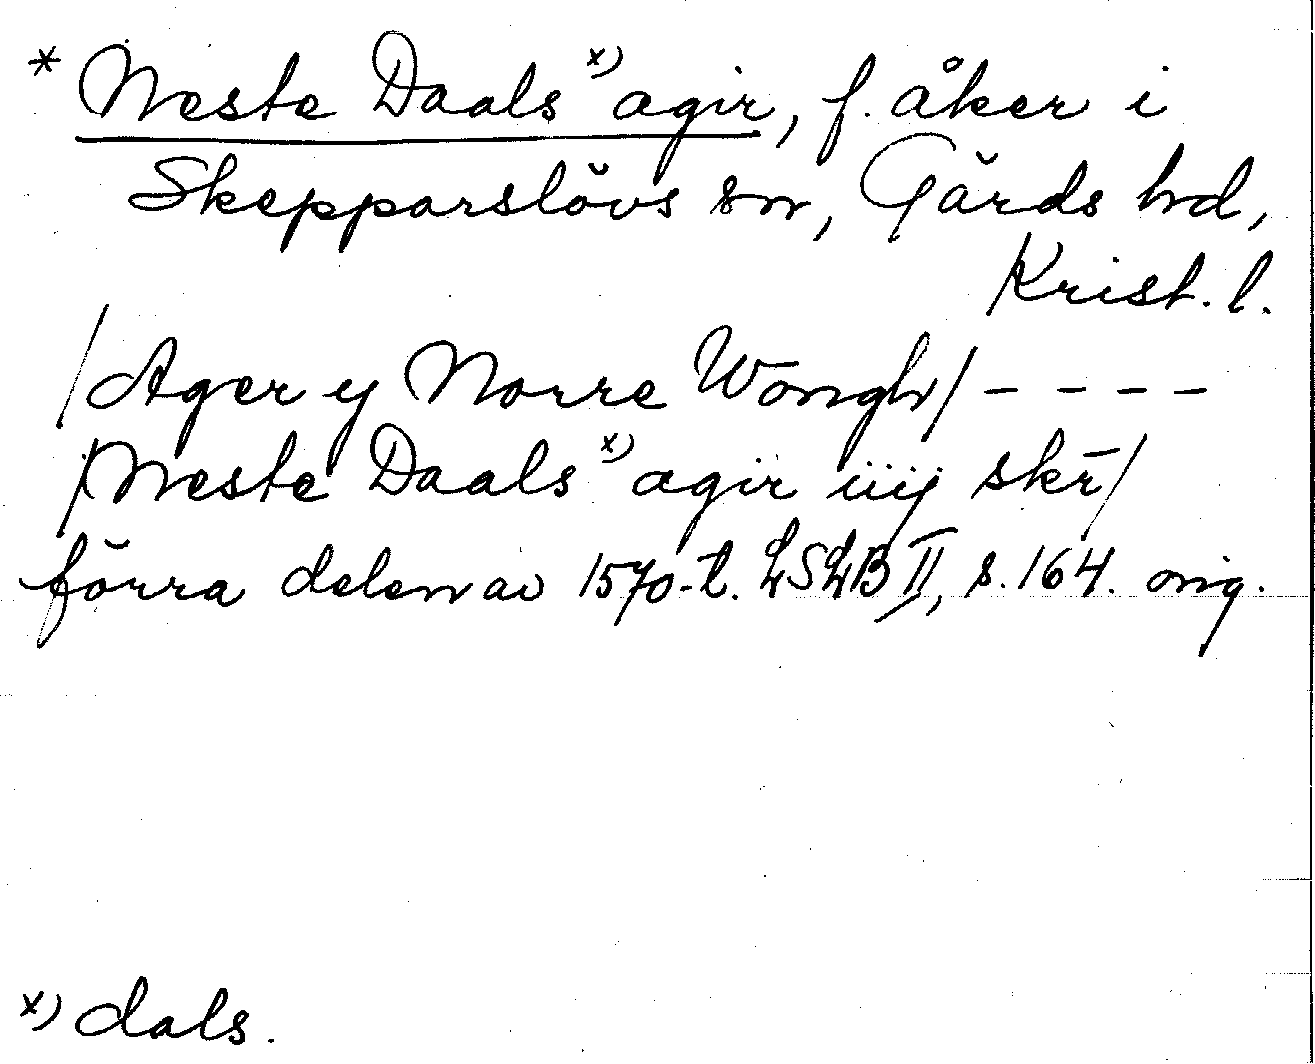 * Neste Daals x) agir, f. åker i
Skepparslövs sn, Gärds hd,
Krist. l.
/Ager y Norre Wongh/ - - - -
/Neste Daals x) agir iiij skr̄/
förra delen av 1570-t. LSLB II, s. 164. orig.
x) dals.